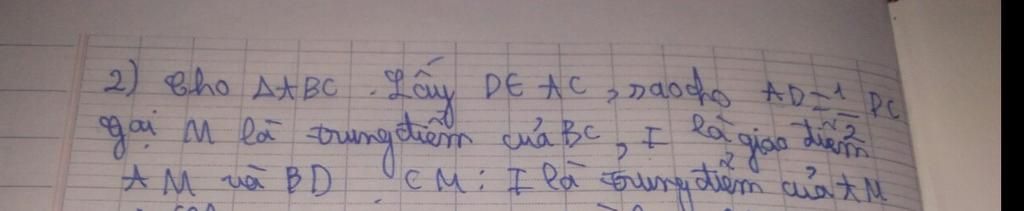 2) Cho ΔABC. Lấy D ∈ AC, sao cho AD = 1/2 DC
gọi M là trung điểm của BC, I là giao điểm
AM và BD. CM: I là trung điểm của AM